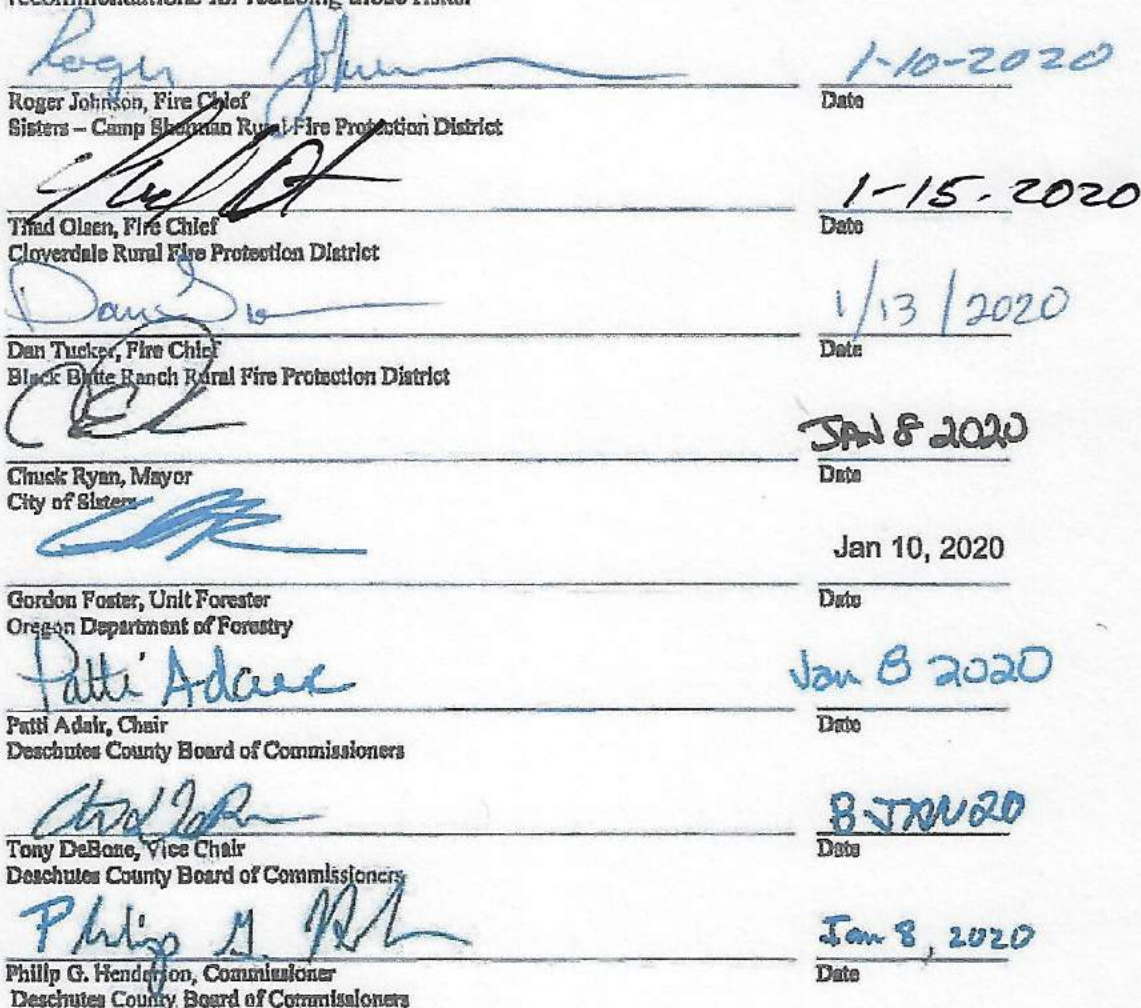 recommendations for reducing those risks.
Roger Johnson 1-10-2020
Roger Johnson, Fire Chief Date
Sisters – Camp Sherman Rural Fire Protection District
1-15-2020
Thad Olsen, Fire Chief Date
Cloverdale Rural Fire Protection District
1/13/2020
Dan Tucker, Fire Chief Date
Black Butte Ranch Rural Fire Protection District
JAN 8 2020
Chuck Ryan, Mayor Date
City of Sisters
Jan 10, 2020
Gordon Foster, Unit Forester Date
Oregon Department of Forestry
Patti Adair Jan 8 2020
Patti Adair, Chair Date
Deschutes County Board of Commissioners
8 JAN 20
Tony DeBone, Vice Chair Date
Deschutes County Board of Commissioners
Philip G. Jan 8, 2020
Philip G. Henderson, Commissioner Date
Deschutes County Board of Commissioners